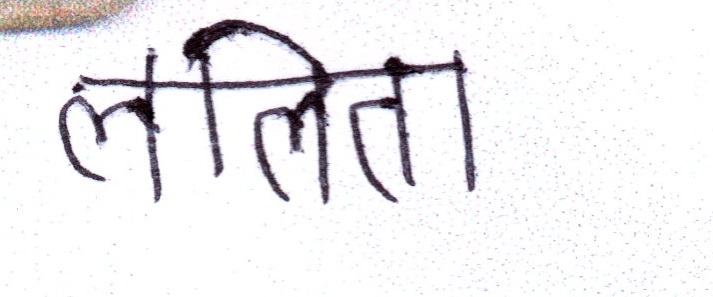 ललिता